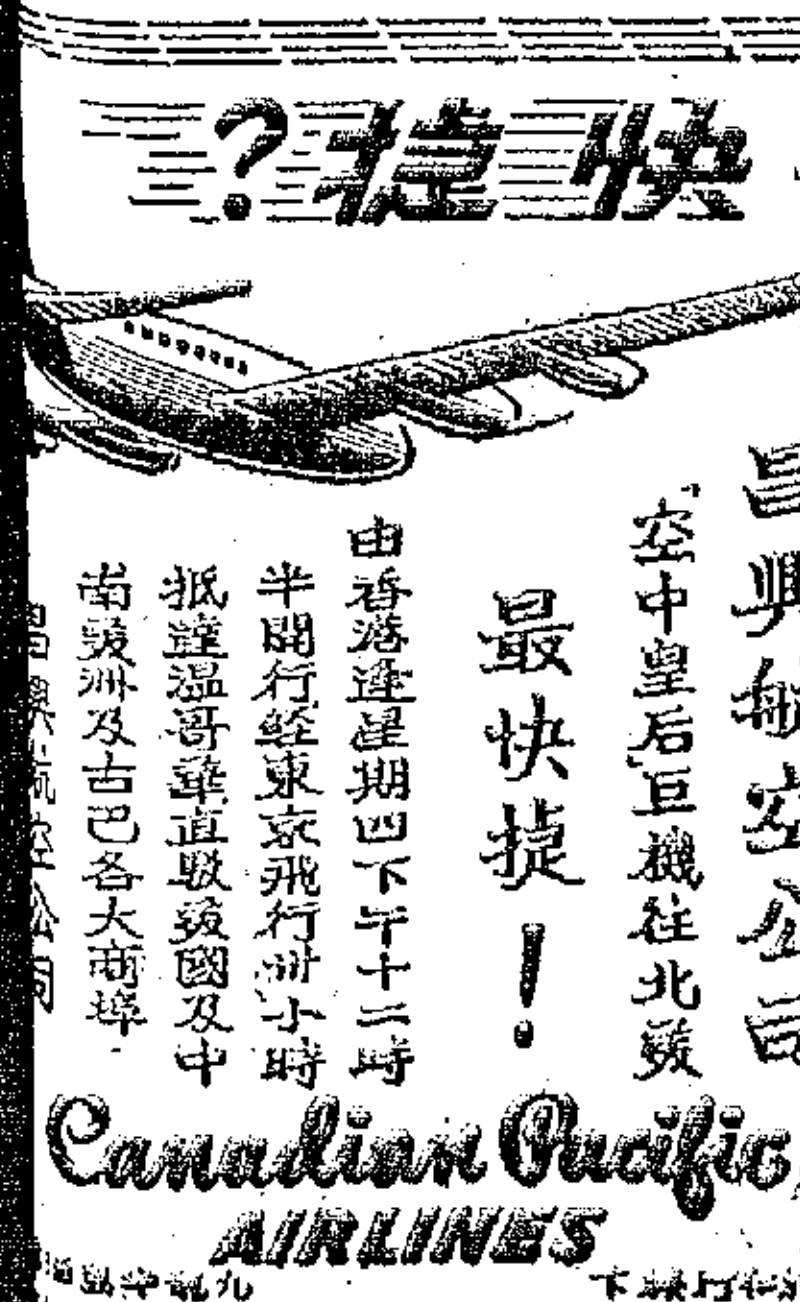 快捷?
昌興航空公司
空中皇后巨機往北美
最快捷!
由香港逢星期四下午十二時
半開行經東京飛行卅小時
抵達溫哥華直駛美國及中
南美洲及古巴各大商埠
Canadian Pacific
AIRLINES